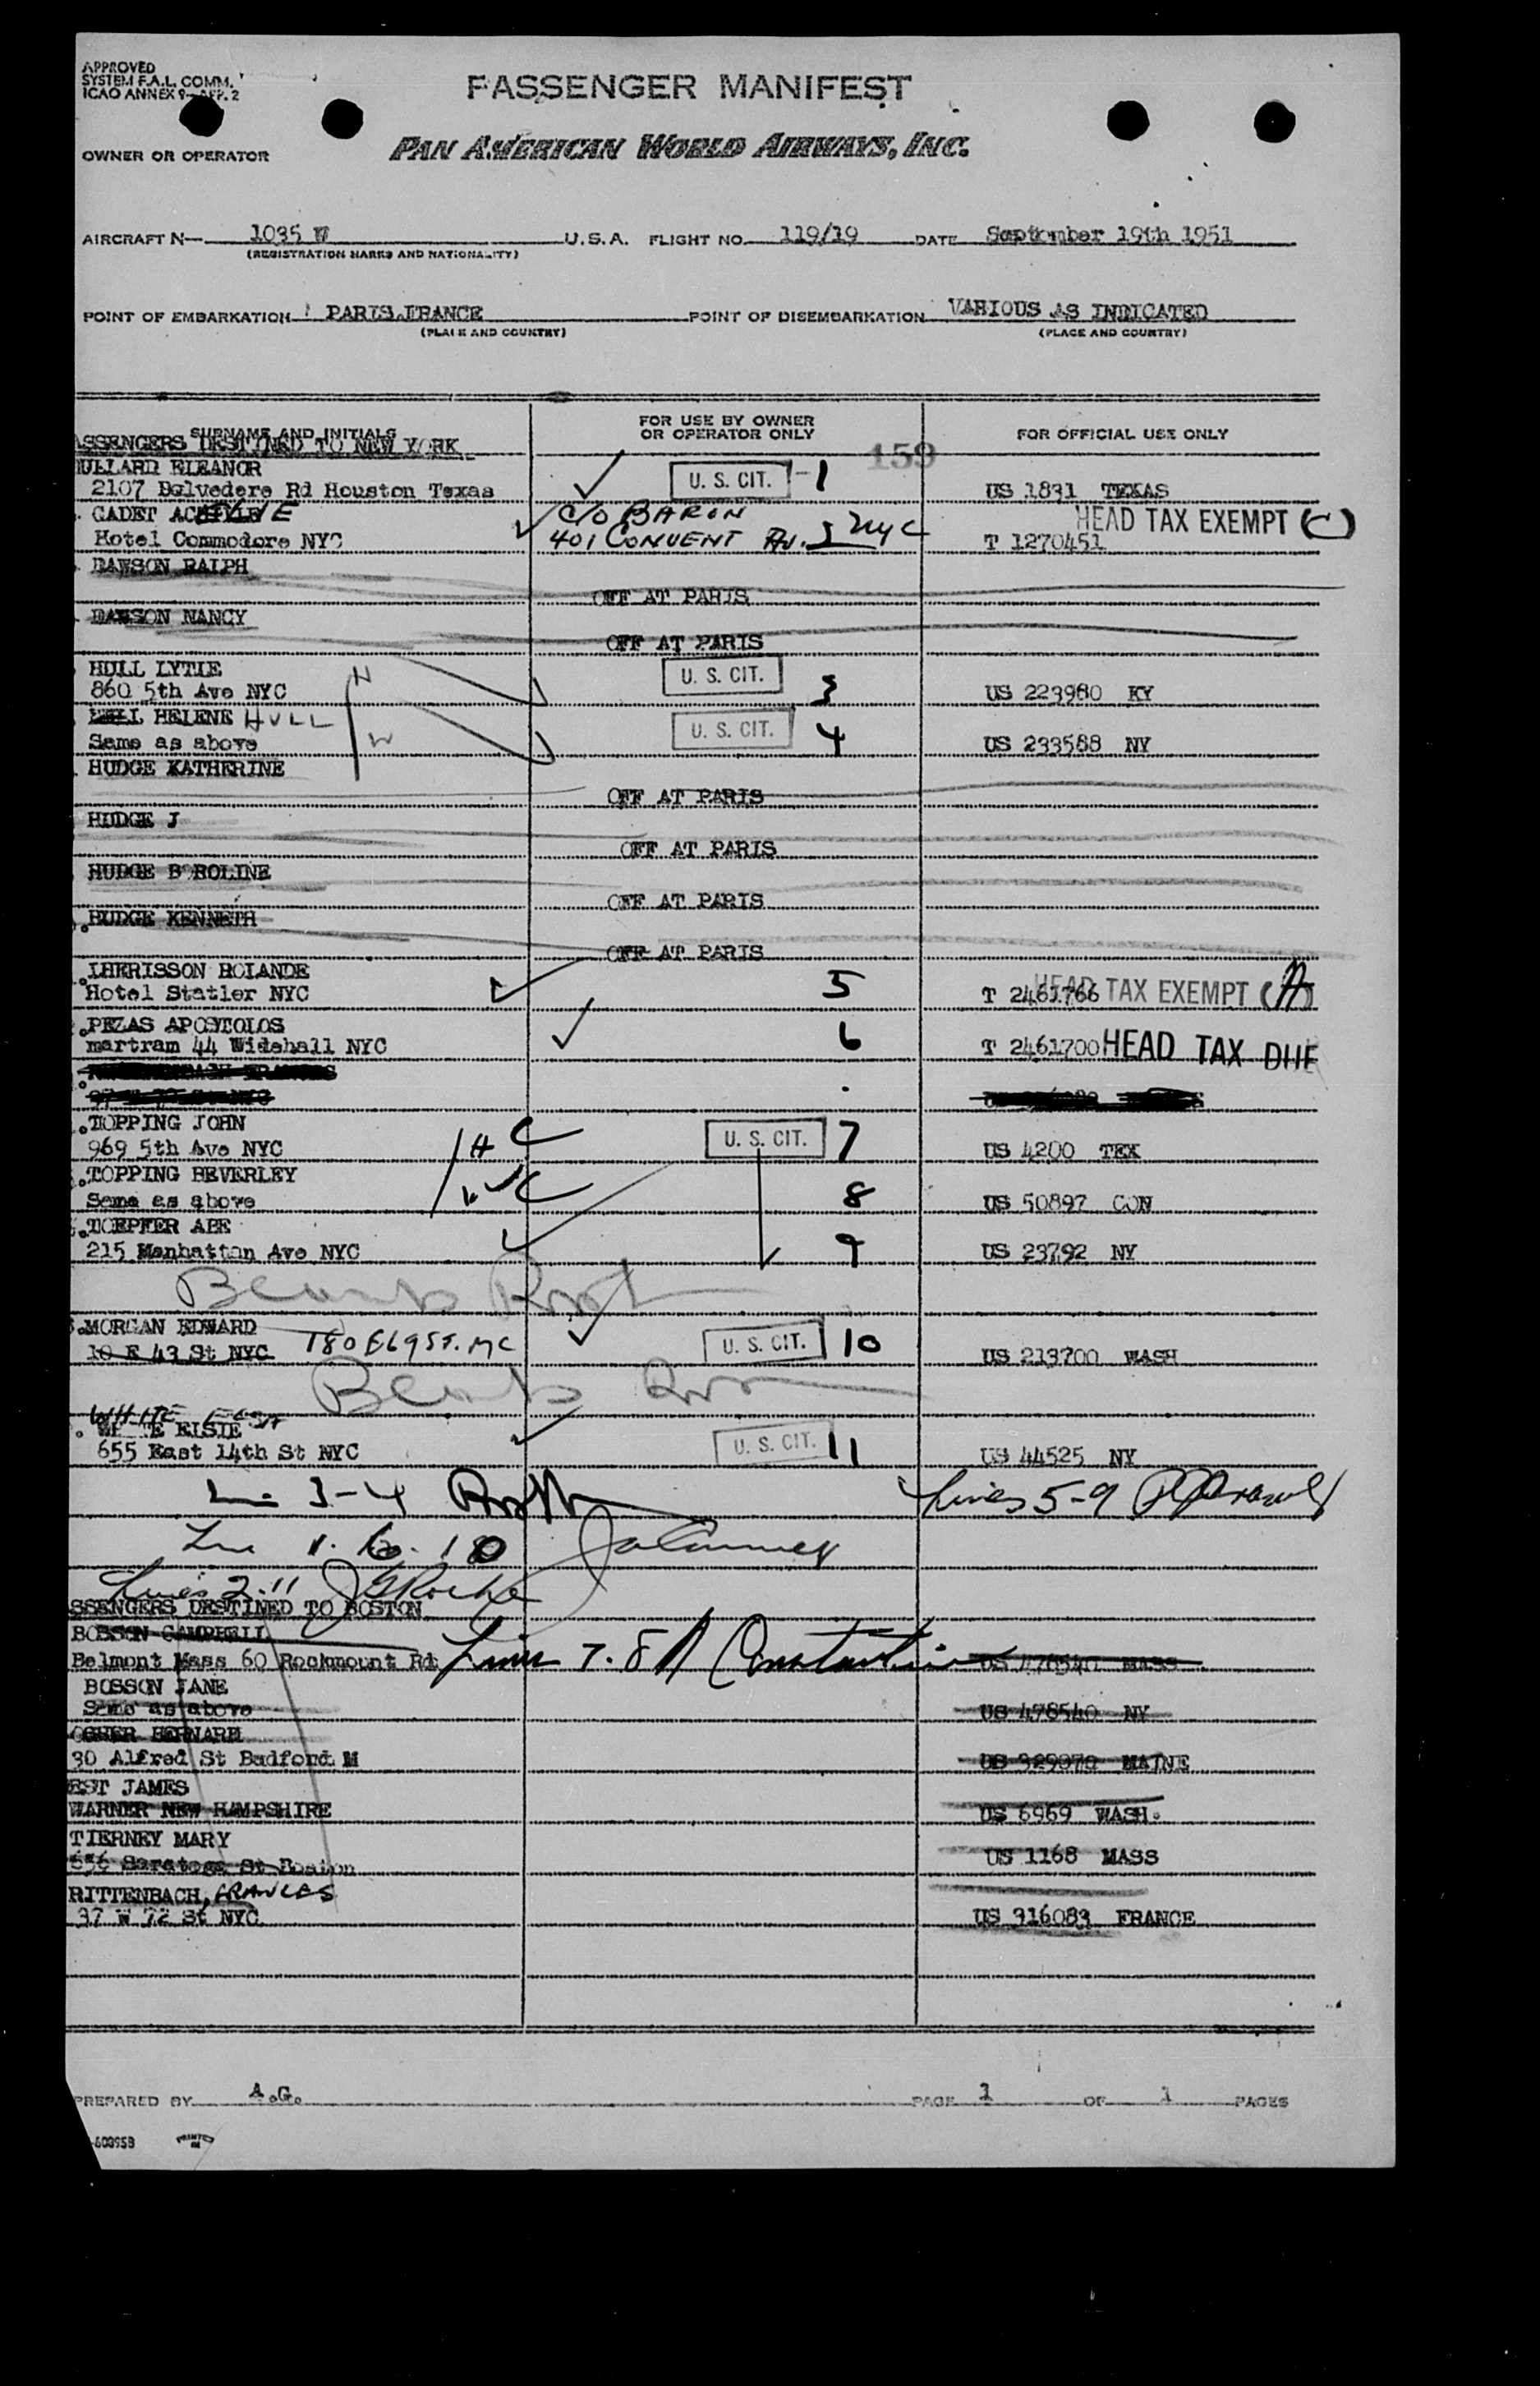 APPROVED
SYSTEM F.A.L. COMM.
ICAO ANNEX 9- APP. 2
PASSENGER MANIFEST
OWNER OR OPERATOR
PAN AMERICAN WORLD AIRWAYS, INC.
AIRCRAFT N— 1035 V U.S.A. FLIGHT NO. 119/19 DATE September 19th 1951
(REGISTRATION MARKS AND NATIONALITY)
POINT OF EMBARKATION PARIS FRANCE POINT OF DISEMBARKATION VARIOUS AS INDICATED
(PLACE AND COUNTRY) (PLACE AND COUNTRY)
SURNAME AND INITIALS FOR USE BY OWNER OR OPERATOR ONLY FOR OFFICIAL USE ONLY
ASSENGERS DESTINED TO NEW YORK 159
ULLARD ELEANOR U. S. CIT. -1
2107 Belvedere Rd Houston Texas US 1831 TEXAS
CADET C/O BARON HEAD TAX EXEMPT (C)
Hotel Commodore NYC 401 CONVENT AV. NYC T 1270451
DAWSON RALPH
OFF AT PARIS
DAWSON NANCY
OFF AT PARIS
HULL LYTLE H U. S. CIT. 3
860 5th Ave NYC US 223980 KY
HELENE HULL U. S. CIT. 4
Same as above W US 233588 NY
HUDGE KATHERINE
OFF AT PARIS
HUDGE J
OFF AT PARIS
HUDGE B ROLINE
OFF AT PARIS
HUDGE KENNETH
OFF AT PARIS
LHERISSON ROLANDE 5 HEAD TAX EXEMPT (A)
Hotel Statler NYC T 2461766
PEZAS APOSTOLOS 6
martram 44 Widehall NYC T 2461700 HEAD TAX DUE
TOPPING JOHN U. S. CIT. 7
969 5th Ave NYC H C US 4200 TEX
TOPPING BEVERLEY
Same as above W C 8 US 50897 CON
TOEPFER ABE
215 Manhattan Ave NYC 9 US 23792 NY
MORGAN EDWARD
10 E 43 St NYC 180 E 69 ST. NYC U. S. CIT. 10 US 213700 WASH
WHITE
ELSIE
655 East 14th St NYC U. S. CIT. 11 US 44525 NY
3-4 Roth Lines 5-9
1. 6. 10
Lines 2-11 J Roche
SSENGERS DESTINED TO BOSTON
BOSSON CAMPBELL
Belmont Mass 60 Rockmount Rd Lines 7-8 US 478540 MASS
BOSSON JANE
Same as above US 478540 NY
OSHER BERNARD
30 Alfred St Badford M US 929070 MAINE
EST JAMES
WARNER NEW HAMPSHIRE US 6969 WASH.
TIERNEY MARY
656 Saratoga St Boston US 1168 MASS
RITTENBACH, FRANCES
37 W 72 St NYC US 916083 FRANCE
PREPARED BY A.G. PAGE 1 OF 1 PAGES
-600958